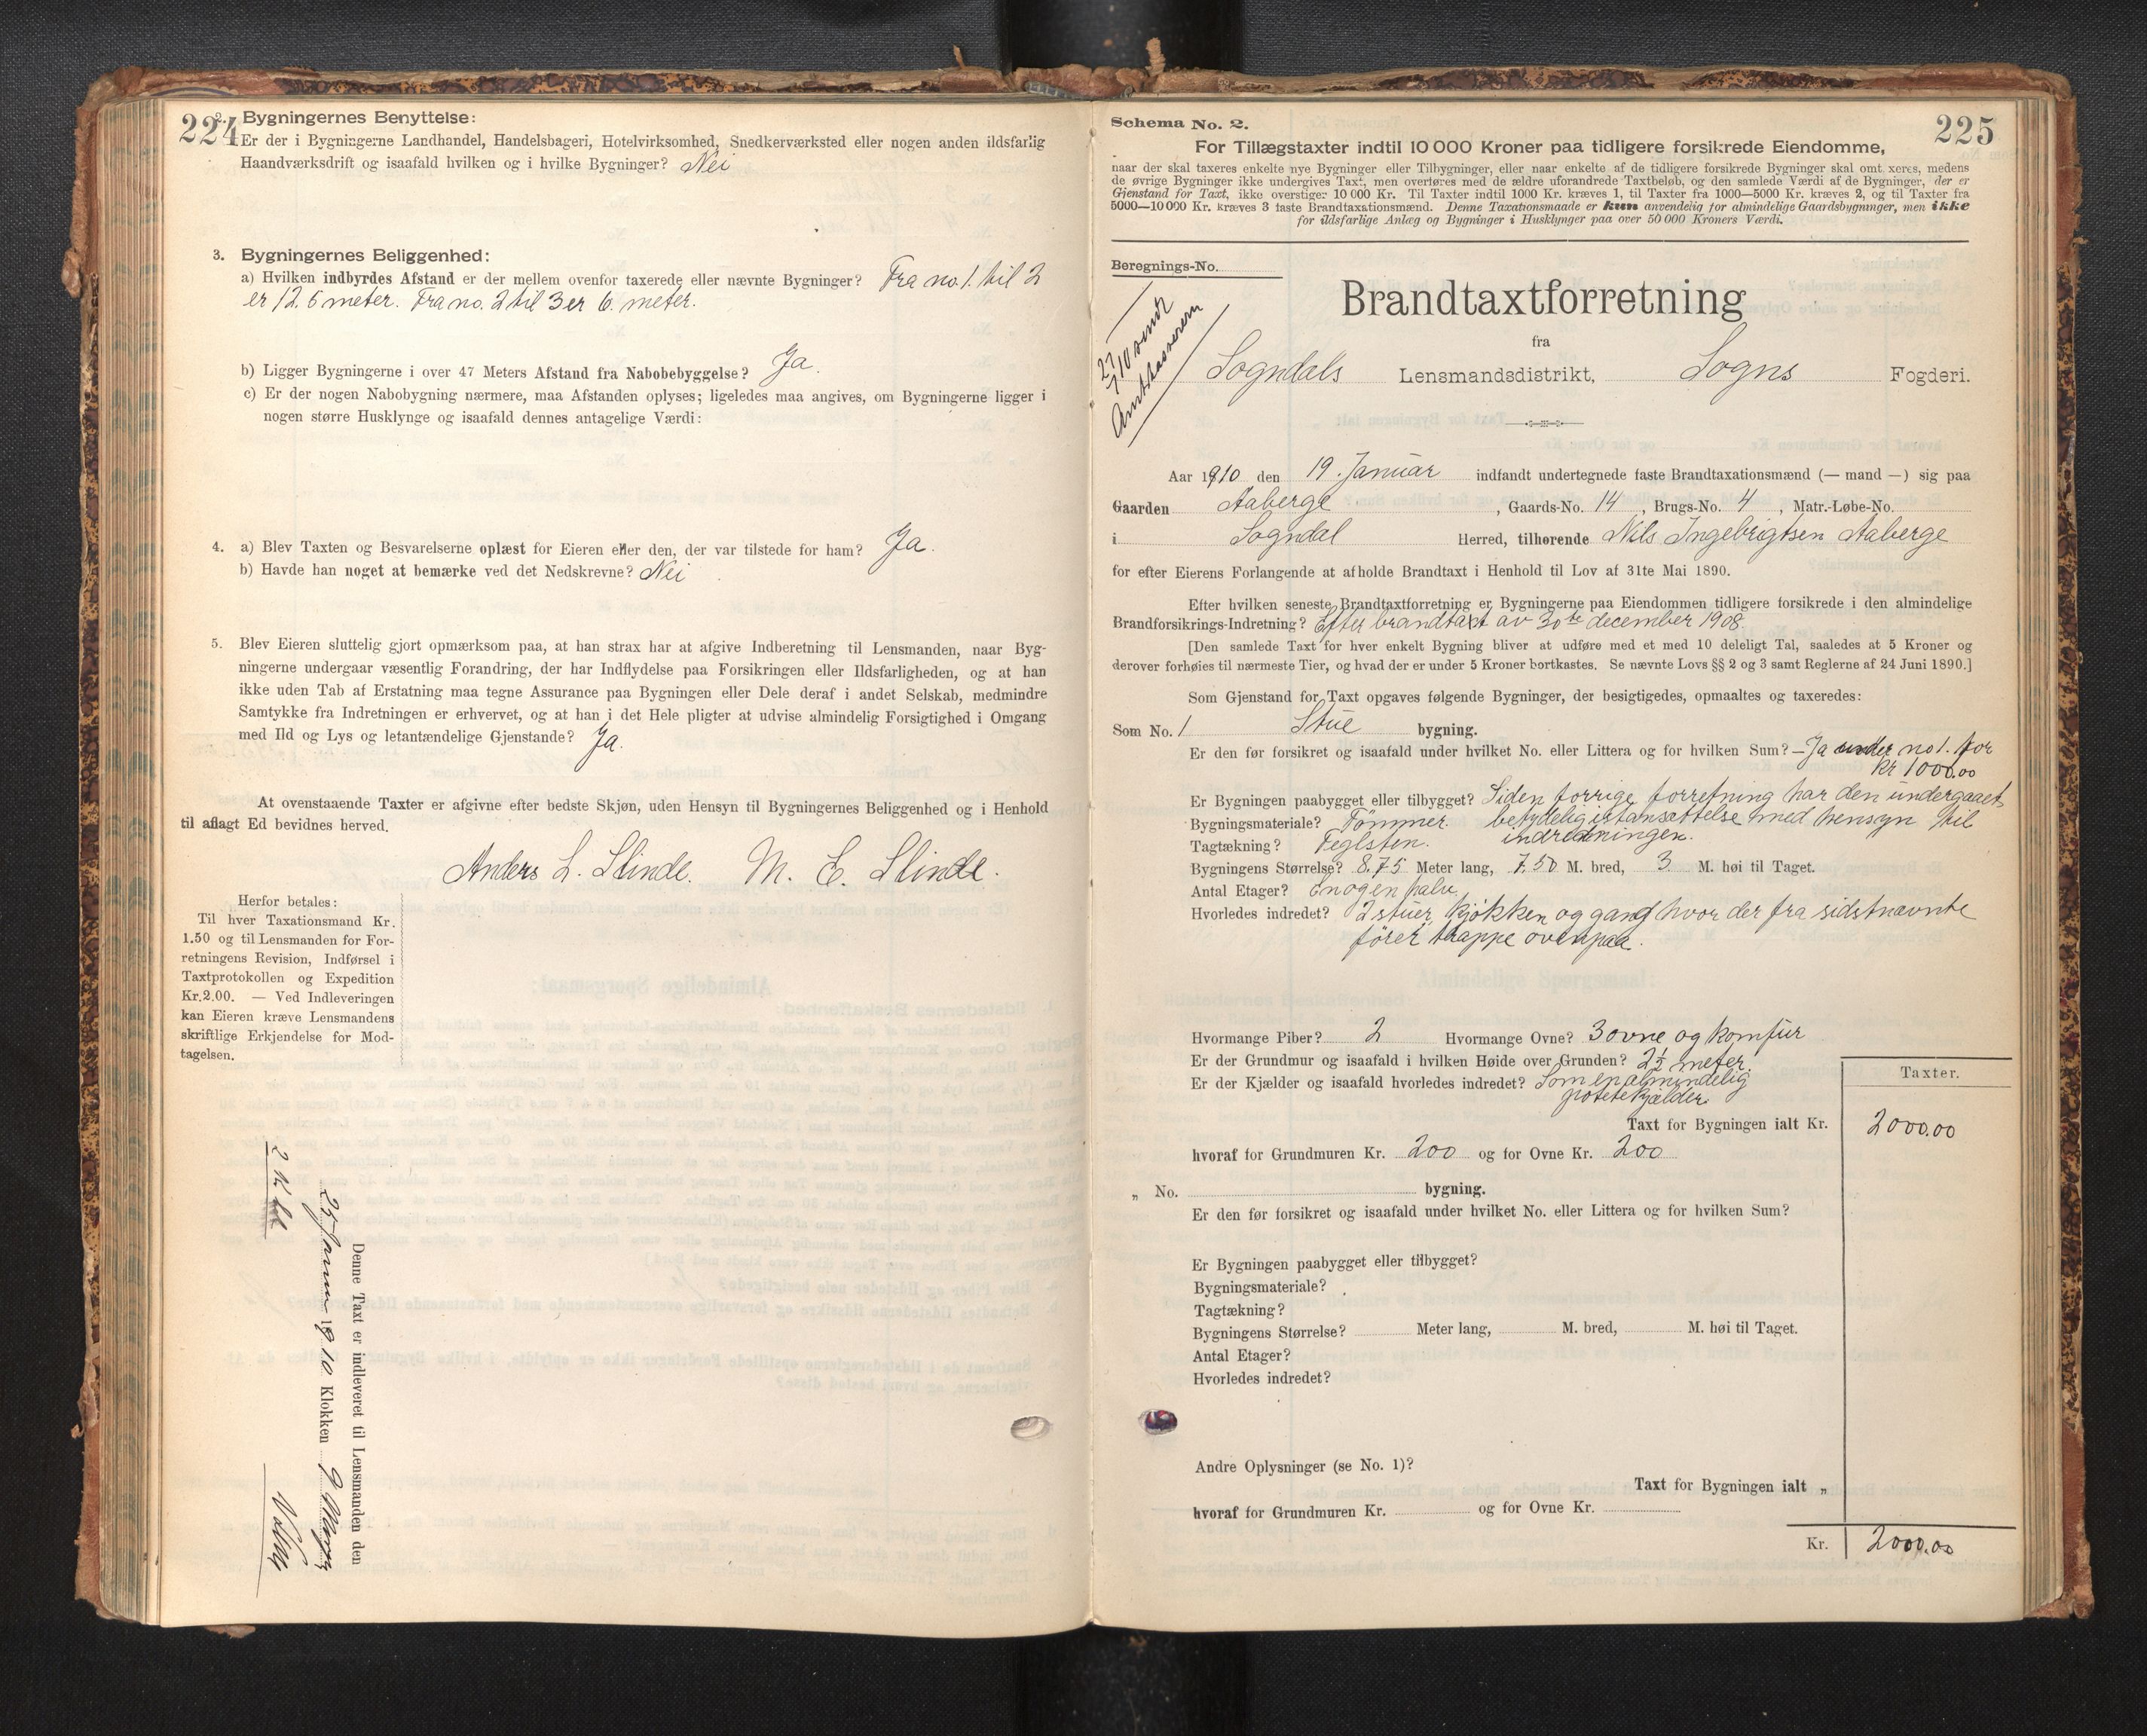 224
2. Bygningernes Benyttelse:
Er der i Bygningerne Landhandel, Handelsbageri, Hotelvirksomhed, Snedkerværksted eller nogen anden ildsfarlig
Haandværksdrift og isaafald hvilken og i hvilke Bygninger? Nei
3. Bygningernes Beliggenhed:
a) Hvilken indbyrdes Afstand er der mellem ovenfor taxerede eller nævnte Bygninger? Fra no. 1. til 2
er 12.5 meter. Fra no. 2 til 3 er 6. meter.
b) Ligger Bygningerne i over 47 Meters Afstand fra Nabobebyggelse? Ja.
c) Er der nogen Nabobygning nærmere, maa Afstanden oplyses; ligeledes maa angives, om Bygningerne ligger i
nogen større Husklynge og isaafald dennes antagelige Værdi:
4. a) Blev Taxten og Besvarelserne oplæst for Eieren eller den, der var tilstede for ham? Ja.
b) Havde han noget at bemærke ved det Nedskrevne? Nei
5. Blev Eieren sluttelig gjort opmærksom paa, at han strax har at afgive Indberetning til Lensmanden, naar Byg-
ningerne undergaar væsentlig Forandring, der har Indflydelse paa Forsikringen eller Ildsfarligheden, og at han
ikke uden Tab af Erstatning maa tegne Assurance paa Bygningen eller Dele deraf i andet Selskab, medmindre
Samtykke fra Indretningen er erhvervet, og at han i det Hele pligter at udvise almindelig Forsigtighed i Omgang
med Ild og Lys og letantændelige Gjenstande? Ja.
At ovenstaaende Taxter er afgivne efter bedste Skjøn, uden Hensyn til Bygningernes Beliggenhed og i Henhold
til aflagt Ed bevidnes herved.
Anders L. Slinde. M. E. Slinde.
Herfor betales:
Til hver Taxationsmand Kr.
1.50 og til Lensmanden for For-
retningens Revision, Indførsel i
Taxtprotokollen og Expedition
Kr. 2.00. — Ved Indleveringen
kan Eieren kræve Lensmandens
skriftlige Erkjendelse for Mod-
tagelsen.
Denne Taxt er indleveret til Lensmanden den
25 Januar 1910 Klokken 9
2 K
225
Schema No. 2.
For Tillægstaxter indtil 10 000 Kroner paa tidligere forsikrede Eiendomme,
naar der skal taxeres enkelte nye Bygninger eller Tilbygninger, eller naar enkelte af de tidligere forsikrede Bygninger skal omtaxeres, medens
de øvrige Bygninger ikke undergives Taxt, men overføres med de ældre uforandrede Taxtbeløb, og den samlede Værdi af de Bygninger, der er
Gjenstand for Taxt, ikke overstiger 10 000 Kr. Til Taxter indtil 1000 Kr. kræves 1, til Taxter fra 1000—5000 Kr. kræves 2, og til Taxter fra
5000—10 000 Kr. kræves 3 faste Brandtaxationsmænd. Denne Taxationsmaade er kun anvendelig for almindelige Gaardsbygninger, men ikke
for ildsfarlige Anlæg og Bygninger i Husklynger paa over 50 000 Kroners Værdi.
Beregnings-No.
Brandtaxtforretning
fra
Sogndals Lensmandsdistrikt, Sogns Fogderi.
Aar 1910 den 19. Januar indfandt undertegnede faste Brandtaxationsmænd (— mand —) sig paa
Gaarden Aaberge, Gaards-No. 14, Brugs-No. 4, Matr.-Løbe-No.
i Sogndal Herred, tilhørende Nils Ingebrigtsen Aaberge
for efter Eierens Forlangende at afholde Brandtaxt i Henhold til Lov af 31te Mai 1890.
Efter hvilken seneste Brandtaxtforretning er Bygningerne paa Eiendommen tidligere forsikrede i den almindelige
Brandforsikrings-Indretning? Efter brandtaxt av 30te december 1908.
[Den samlede Taxt for hver enkelt Bygning bliver at udføre med et med 10 deleligt Tal, saaledes at 5 Kroner og
derover forhøies til nærmeste Tier, og hvad der er under 5 Kroner bortkastes. Se nævnte Lovs §§ 2 og 3 samt Reglerne af 24 Juni 1890.]
Som Gjenstand for Taxt opgaves følgende Bygninger, der besigtigedes, opmaaltes og taxeredes:
Som No. 1 Stue bygning.
Er den før forsikret og isaafald under hvilket No. eller Littera og for hvilken Sum? — Ja under no 1. for
kr 1000.00
Er Bygningen paabygget eller tilbygget? Siden forrige forretning har den undergaaet
Bygningsmateriale? Tømmer. betydelig istansættelse med hensyn til
Tagtækning? Teglsten. indredningen.
Bygningens Størrelse? 8.75 Meter lang, 7.50 M. bred, 3 M. høi til Taget.
Antal Etager? En og en halv
Hvorledes indredet? 2 stuer, kjøkken og gang hvor der fra sidstnævnte
fører trappe ovenpaa.
Hvormange Piber? 2 Hvormange Ovne? 3 ovne og komfur
Er der Grundmur og isaafald i hvilken Høide over Grunden? 2½ meter.
Er der Kjælder og isaafald hvorledes indredet? Som en almindelig
potetekjælder.
Taxter.
Taxt for Bygningen ialt Kr. 2000.00
hvoraf for Grundmuren Kr. 200 og for Ovne Kr. 200
„ No. bygning.
Er den før forsikret og isaafald under hvilket No. eller Littera og for hvilken Sum?
Er Bygningen paabygget eller tilbygget?
Bygningsmateriale?
Tagtækning?
Bygningens Størrelse? Meter lang, M. bred, M. høi til Taget.
Antal Etager?
Hvorledes indredet?
Andre Oplysninger (se No. 1)?
Taxt for Bygningen ialt „
hvoraf for Grundmuren Kr. og for Ovne Kr.
Kr. 2000.00